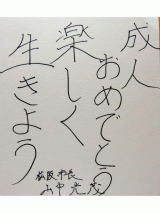 成人
おめでとう
楽しく
生きよう
松阪市長
山中光茂